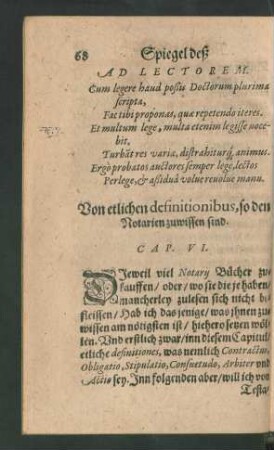 68 Spiegel deß
AD LECTOREM.
Cum legere haud possis Doctorum plurima
scripta,
Fac tibi proponas, quæ repetendo iteres.
Et multum lege, multa etenim legisse nocebit,
Turbãt res varia, distrahiturq́; animus.
Ergò probatos auctores semper lege, lectos
Perlege, & assiduâ volue reuolue manu.
Von etlichen definitionibus, so den
Notarien zuwissen sind.
CAP. VI.
DJeweil viel Notarij Bücher zu
kauffen / oder / wo sie die je haben /
mancherley zulesen sich nicht bi-
fleissen / Hab ich das jenige / was jhnen zu
wissen am nötigsten ist / hiehero setzen wöl-
len. Vnd erstlich zwar / inn diesem Capitul /
etliche definitiones, was nemlich Contractus,
Obligatio, Stipulatio, Consuetudo, Arbiter vnd
Actio sey. Jnn folgenden aber / will ich von
Testa-